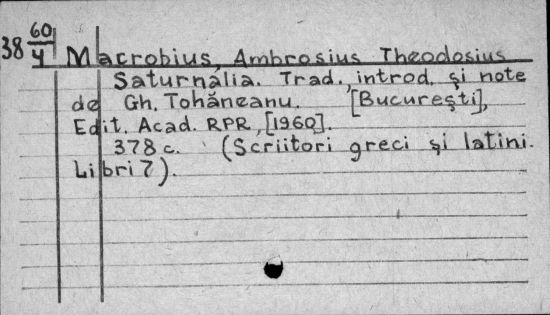 38 60/4
Macrobius, Ambrosius Theodosius
Saturnalia. Trad., introd. și note
de Gh. Tohăneanu. [București],
Edit. Acad. RPR, [1960].
378 c. (Scriitori greci și latini.
Libri 7).